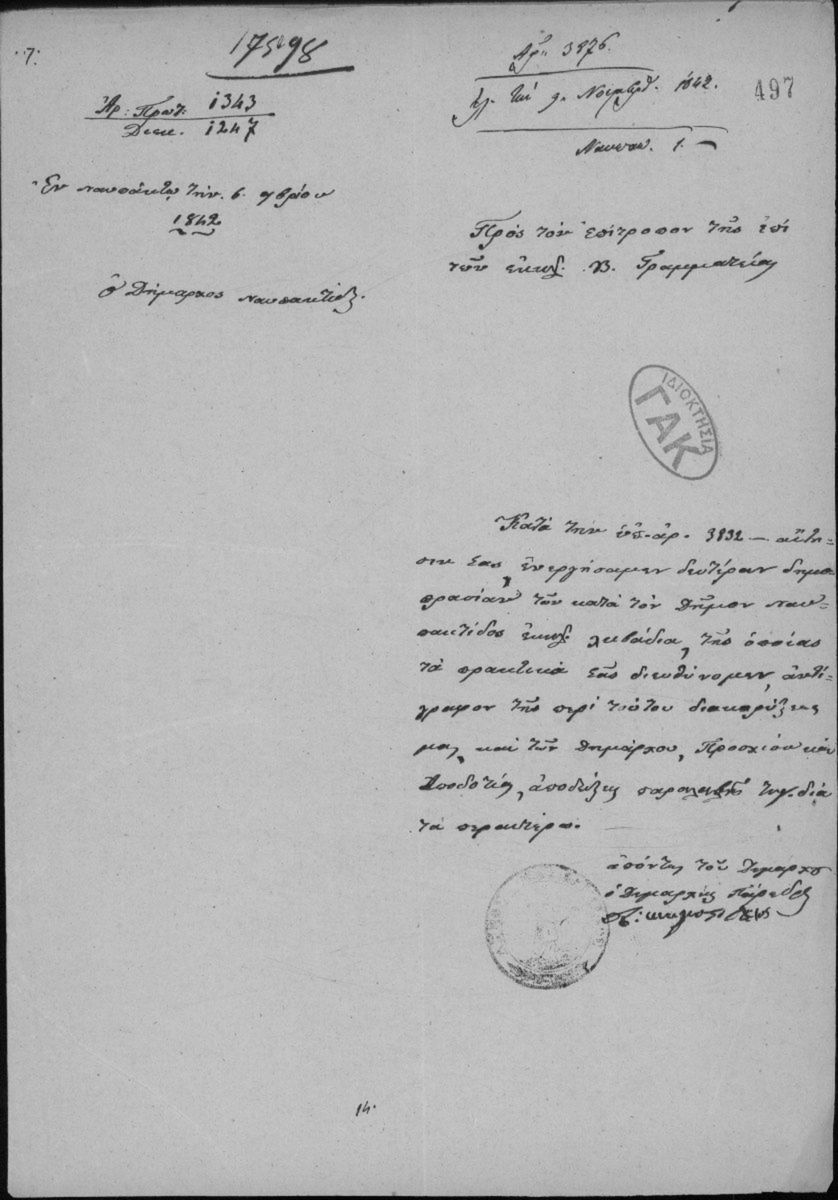 7.
17598
Ἀρ: Πρωτ: 1343
Διεκ. 1247
Ἐν Ναυπάκτῳ τὴν 6. 9βρίου
1842
ὁ Δήμαρχος Ναυπακτίδος.
Ἀρ. 3876.
Νοεμβρ. 1842.
497
Ναυπακ. 1.
Πρὸς τὸν ἐπίτροπον τῆς ἐπὶ
τῶν ἐκκλ. Β. Γραμματείας
ΙΔΙΟΚΤΗΣΙΑ
ΓΑΚ
Κατὰ τὴν ὑπ. ἀρ. 3832 — αἴτη-
σίν σας, ἐνεργήσαμεν δευτέραν δημο-
πρασίαν τῶν κατὰ τὸν Δῆμον Ναυ-
πακτίδος ἐκκλ. λιβάδια, τῆς ὁποίας
τὰ πρακτικὰ σᾶς διευθύνομεν, ἀντί-
γραφον τῆς περὶ τούτου διακηρύξεώς
μας, καὶ τῶν Δημάρχων, Προσχίου καὶ
Ἀποδοτίας, ἀποδείξεις παραλαβῆς της διὰ
τὰ περαιτέρω.
ἀπόντος τοῦ Δημάρχου
ὁ Δημαρχικὸς Πάρεδρος
14.